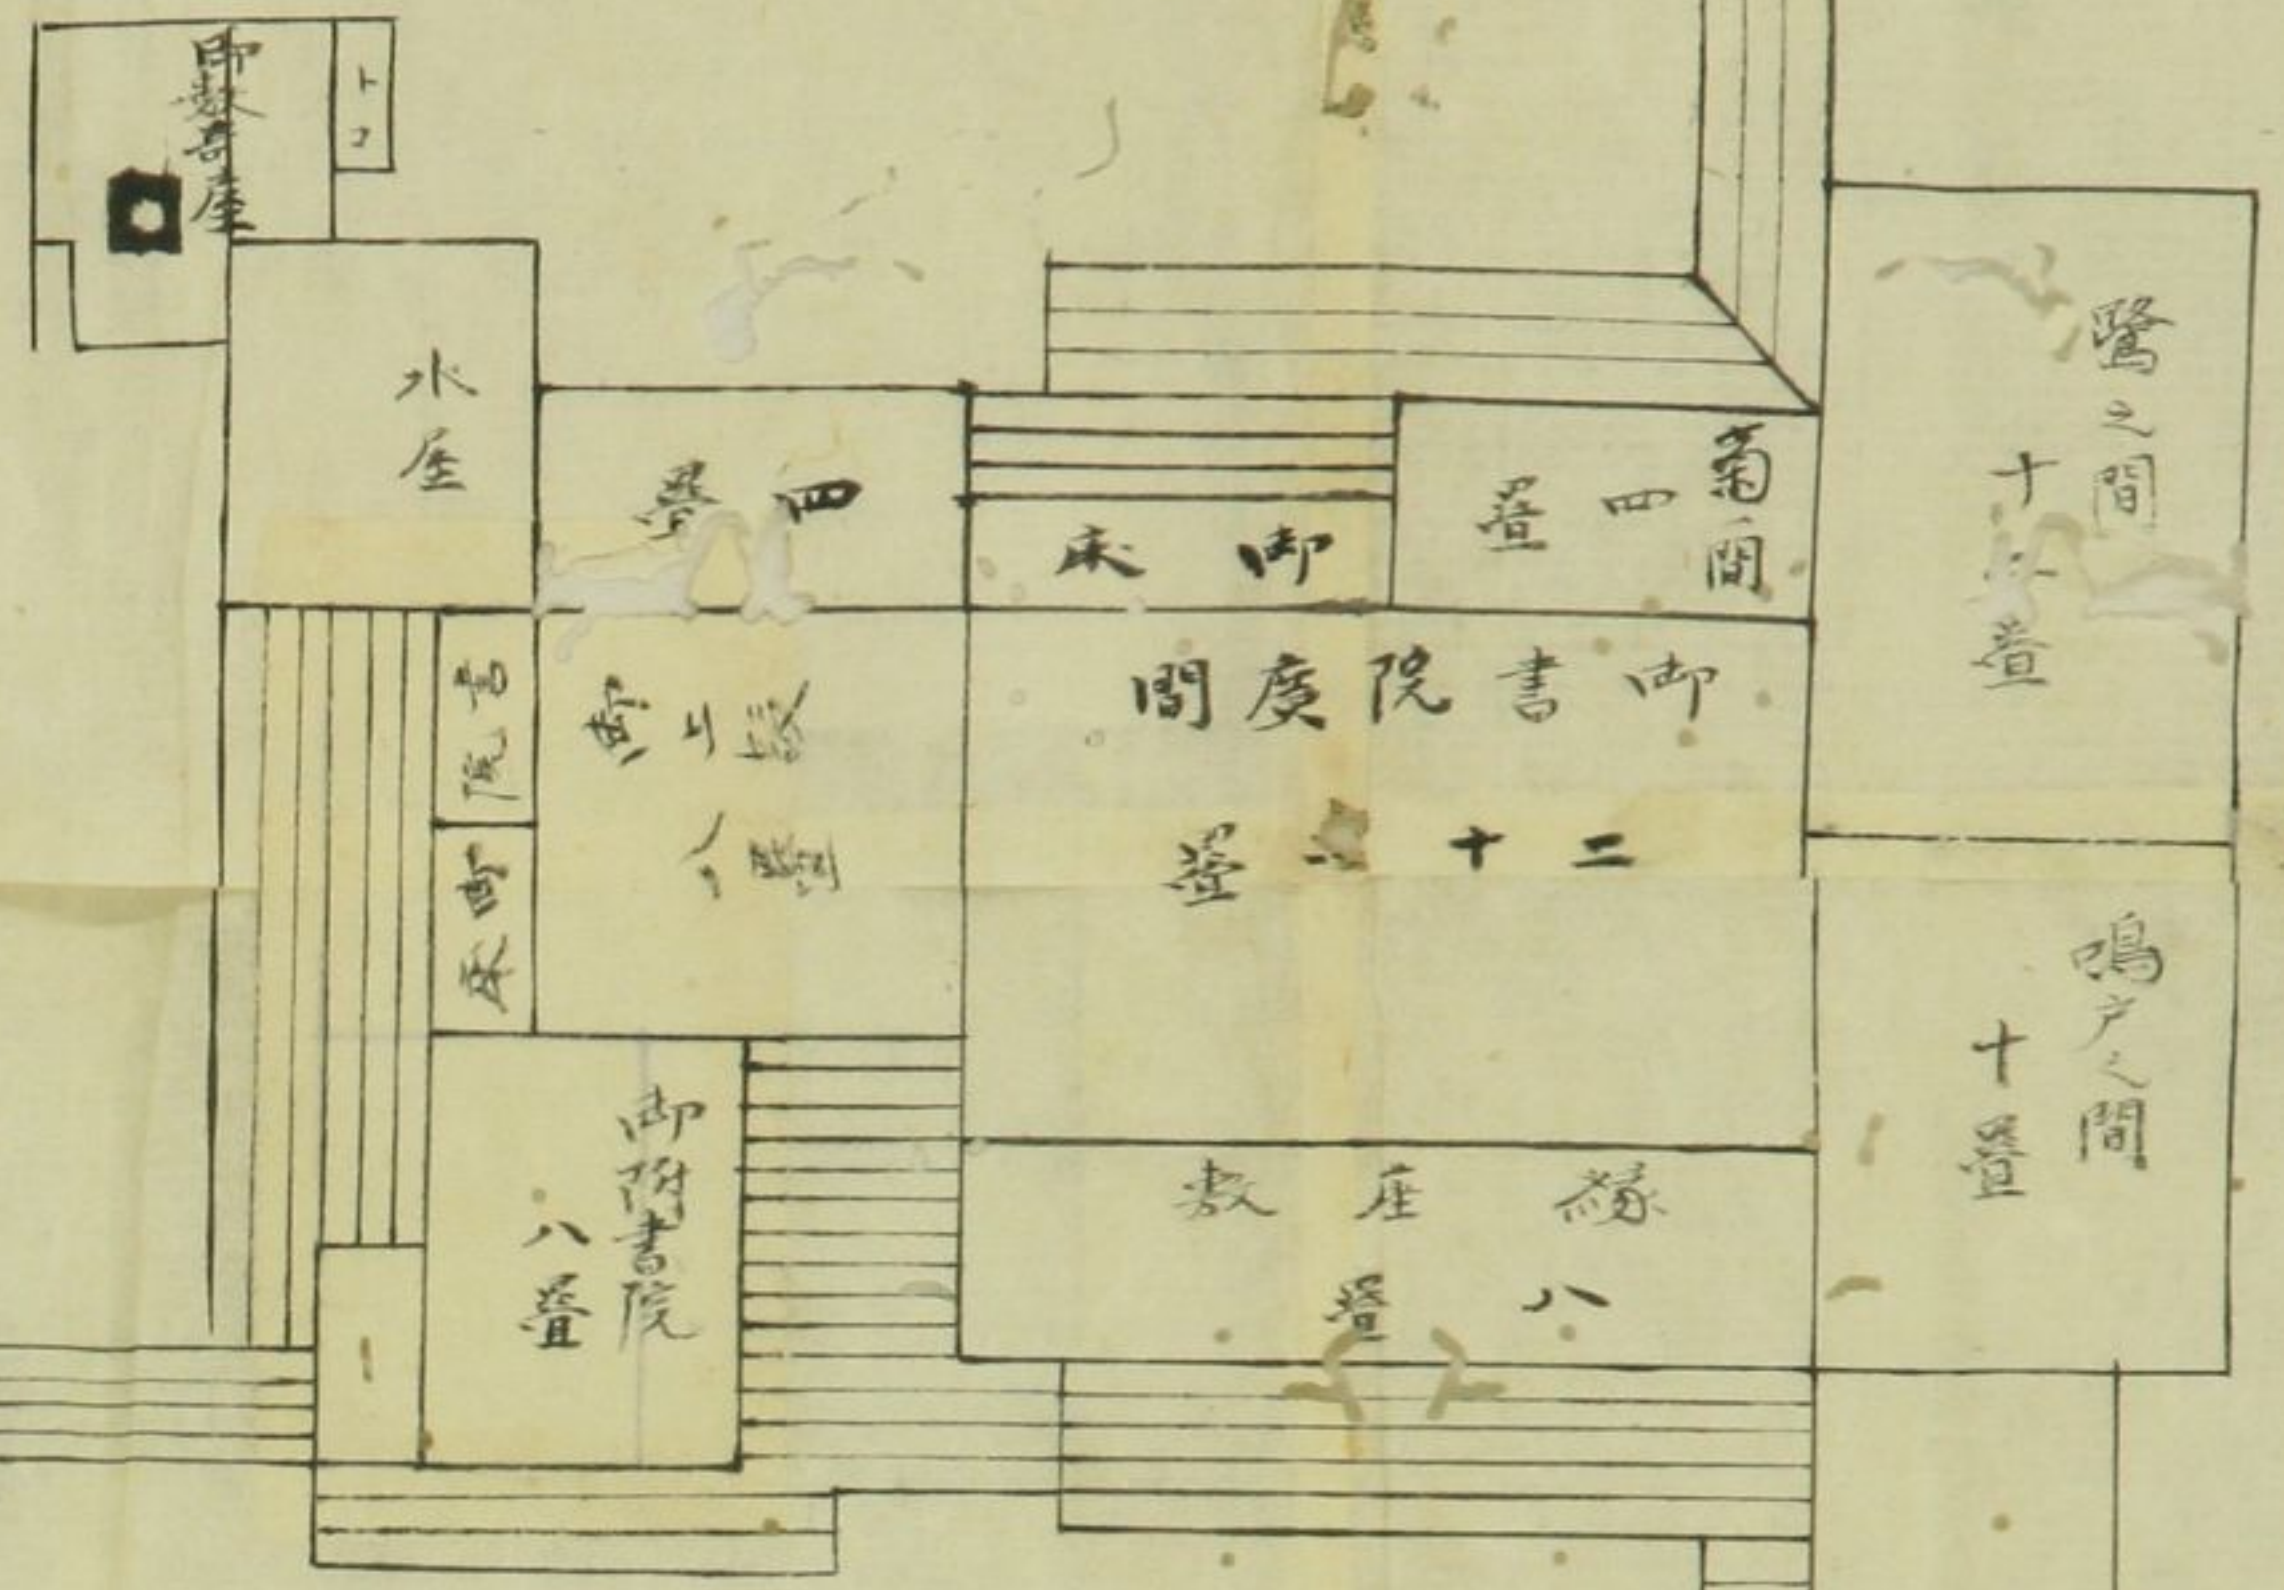 御数寄屋
トコ
水屋
四畳
御床
菊ノ間
四畳
鷺之間
十 畳
御書院廣間
二十 畳
御上段
八畳
書院
御床
鳴戸之間
十畳
縁座敷
八畳
御附書院
八畳